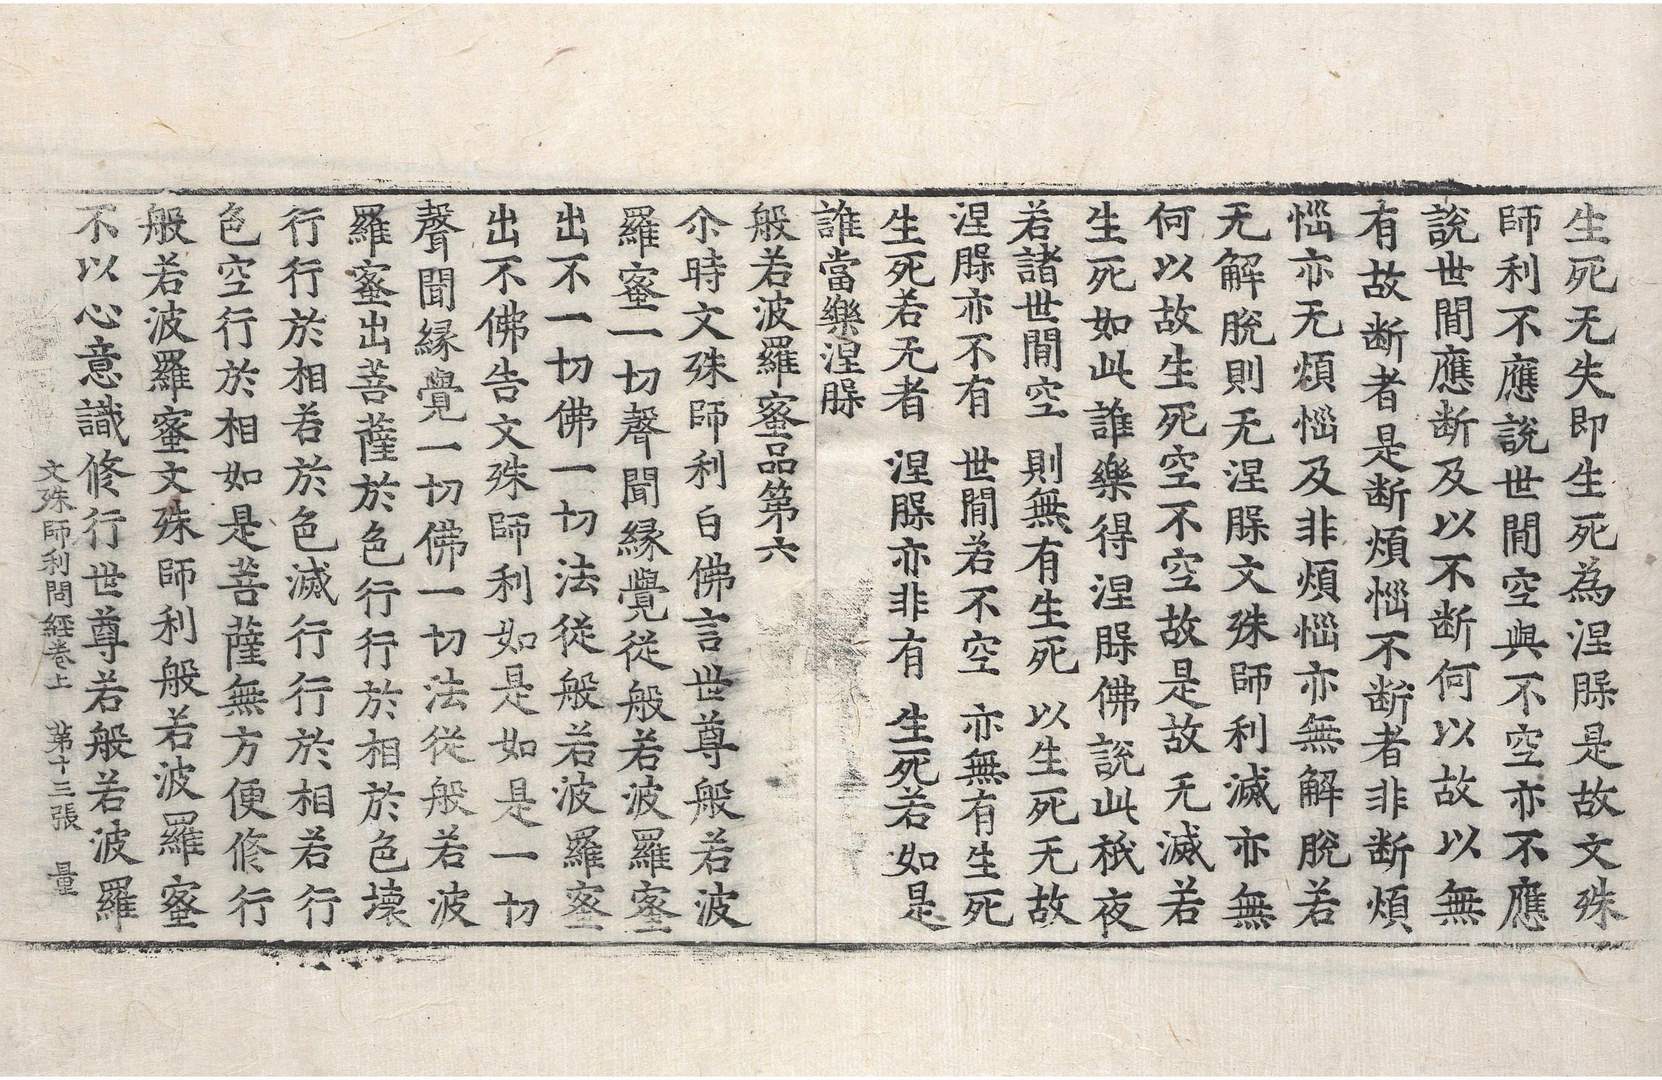 生死无失即生死為涅槃是故文殊
師利不應說世間空與不空亦不應
說世間應断及以不断何以故以無
有故断者是断煩惱不断者非断煩
惱亦无煩惱及非煩惱亦無解脫若
无解脫則无涅槃文殊師利滅亦無
何以故生死空不空故是故无滅若
生死如此誰樂得涅槃佛說此祇夜
若諸世間空 則無有生死 以生死无故
涅槃亦不有 世間若不空 亦無有生死
生死若无者 涅槃亦非有 生死若如是
誰當樂涅槃
般若波羅蜜品第六
尒時文殊師利白佛言世尊般若波
羅蜜一切聲聞緣覺從般若波羅蜜
出不一切佛一切法從般若波羅蜜
出不佛告文殊師利如是如是一切
聲聞緣覺一切佛一切法從般若波
羅蜜出菩薩於色行行於相於色壞
行行於相若於色滅行行於相若行
色空行於相如是菩薩無方便修行
般若波羅蜜文殊師利般若波羅蜜
不以心意識修行世尊若般若波羅
文殊師利問經卷上 第十三張 量